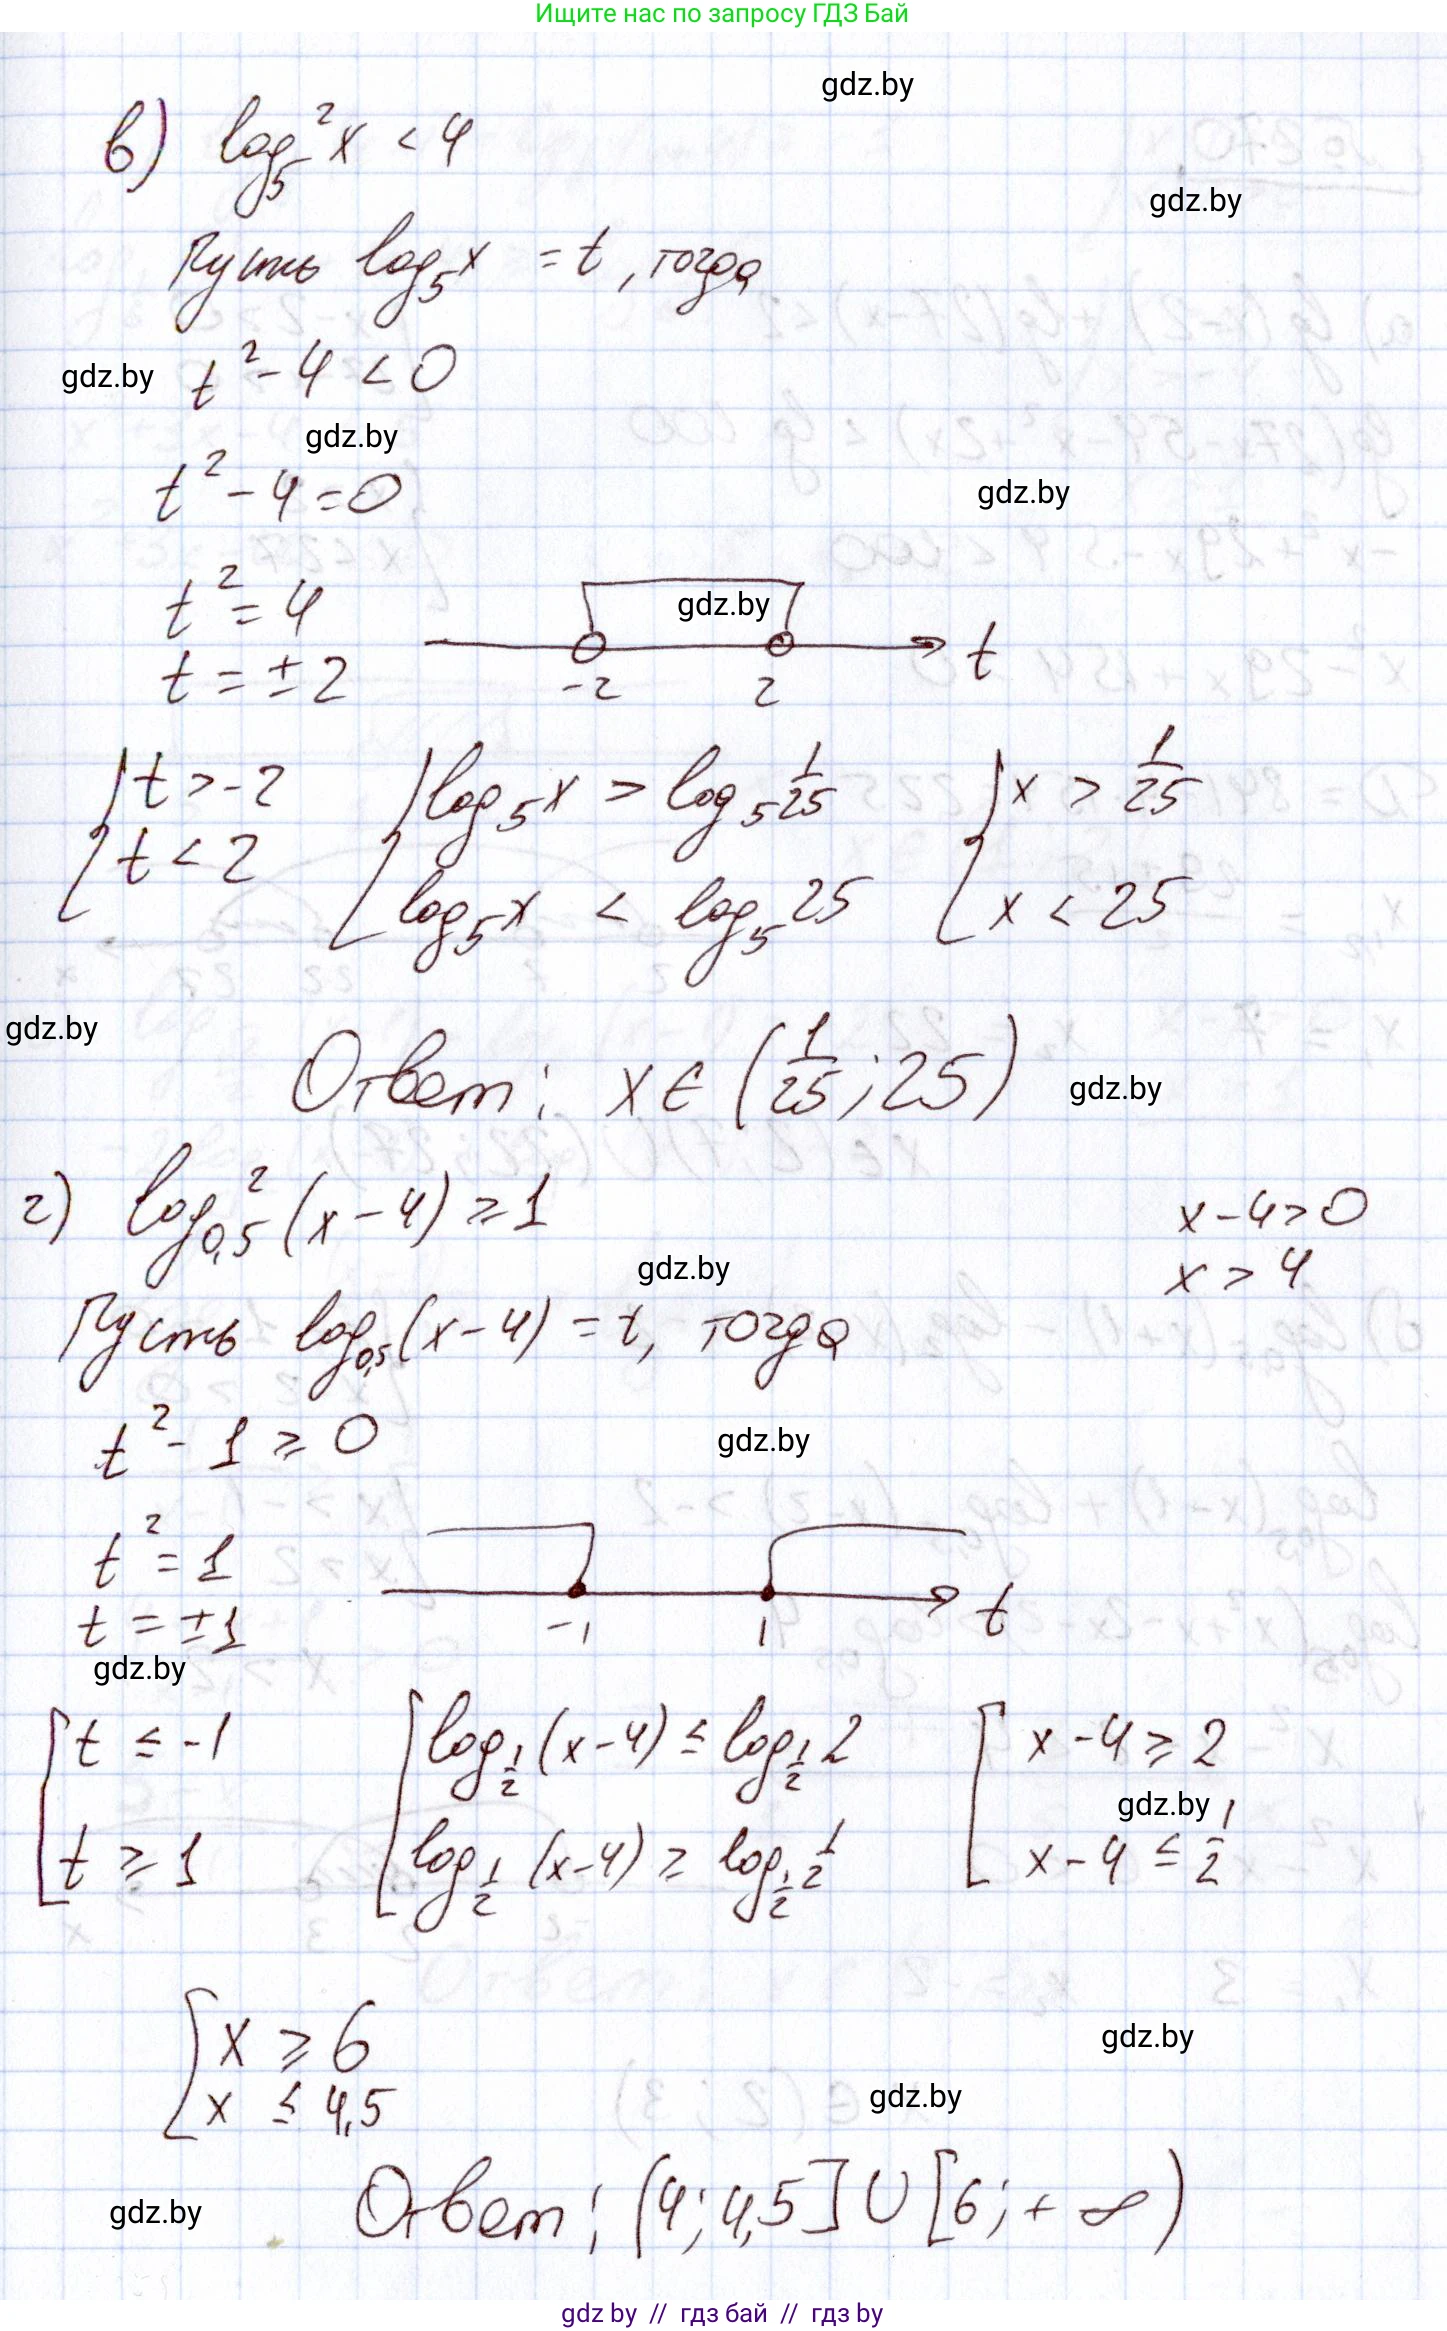 Ищите нас по запросу ГДЗ Бай
gdz.by
в) log₅²x < 4
gdz.by
Пусть log₅x = t, тогда
gdz.by
t² - 4 < 0
gdz.by
t² - 4 = 0
gdz.by
t² = 4
gdz.by
t = ±2
-2 2 t
{ t > -2 { log₅x > log₅ 1/25 { x > 1/25
t < 2 log₅x < log₅ 25 x < 25
gdz.by
Ответ: x ∈ (1/25; 25)
gdz.by
г) log₀,₅²(x - 4) ≥ 1 x - 4 > 0
gdz.by
x > 4
Пусть log₀,₅(x - 4) = t, тогда
t² - 1 ≥ 0
gdz.by
t² = 1
t = ±1
-1 1 t
gdz.by
[ t ≤ -1 [ log_1/2 (x - 4) ≤ log_1/2 2 [ x - 4 ≥ 2
gdz.by
t ≥ 1 log_1/2 (x - 4) ≥ log_1/2 1/2 x - 4 ≤ 1/2
[ x ≥ 6
gdz.by
x ≤ 4,5
gdz.by
Ответ: (4; 4,5] ∪ [6; +∞)
gdz.by
gdz by // гдз бай // гдз by